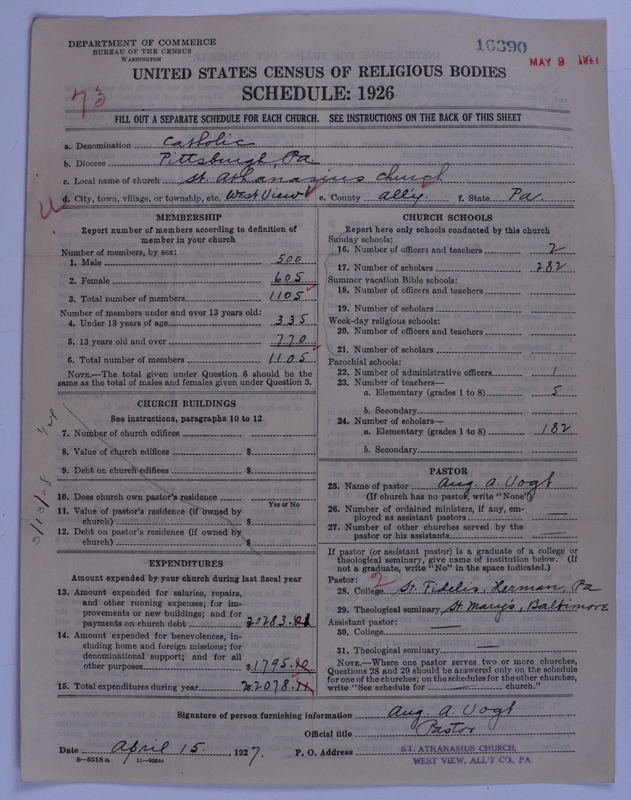 DEPARTMENT OF COMMERCE
BUREAU OF THE CENSUS
WASHINGTON
16390
MAY 9
UNITED STATES CENSUS OF RELIGIOUS BODIES
SCHEDULE: 1926
73
FILL OUT A SEPARATE SCHEDULE FOR EACH CHURCH. SEE INSTRUCTIONS ON THE BACK OF THIS SHEET
a. Denomination Catholic
b. Diocese Pittsburgh, Pa
c. Local name of church St. Athanasius Church
d. City, town, village, or township, etc. West View e. County All'y. f. State Pa.
MEMBERSHIP
Report number of members according to definition of
member in your church
Number of members, by sex:
1. Male 500
2. Female 605
3. Total number of members 1105
Number of members under and over 13 years old:
4. Under 13 years of age 335
5. 13 years old and over 770
6. Total number of members 1105
NOTE.—The total given under Question 6 should be the
same as the total of males and females given under Question 3.
CHURCH BUILDINGS
See instructions, paragraphs 10 to 12
7. Number of church edifices
8. Value of church edifices $
9. Debt on church edifices $
10. Does church own pastor's residence
Yes or No
11. Value of pastor's residence (if owned by
church) $
12. Debt on pastor's residence (if owned by
church) $
EXPENDITURES
Amount expended by your church during last fiscal year
13. Amount expended for salaries, repairs,
and other running expenses; for im-
provements or new buildings; and for
payments on church debt 20283.
14. Amount expended for benevolences, in-
cluding home and foreign missions; for
denominational support; and for all
other purposes $1795.
15. Total expenditures during year 22078.
CHURCH SCHOOLS
Report here only schools conducted by this church
Sunday schools:
16. Number of officers and teachers 2
17. Number of scholars 282
Summer vacation Bible schools:
18. Number of officers and teachers
19. Number of scholars
Week-day religious schools:
20. Number of officers and teachers
21. Number of scholars
Parochial schools:
22. Number of administrative officers 1
23. Number of teachers—
a. Elementary (grades 1 to 8) 5
b. Secondary
24. Number of scholars—
a. Elementary (grades 1 to 8) 182
b. Secondary
PASTOR
25. Name of pastor Aug. A. Vogt
(If church has no pastor, write "None")
26. Number of ordained ministers, if any, em-
ployed as assistant pastors —
27. Number of other churches served by the
pastor or his assistants —
If pastor (or assistant pastor) is a graduate of a college or
theological seminary, give name of institution below. (If
not a graduate, write "No" in the space indicated.)
Pastor: 2
28. College St. Fidelis, Herman, Pa
29. Theological seminary St. Mary's, Baltimore
Assistant pastor:
30. College —
31. Theological seminary —
NOTE.—Where one pastor serves two or more churches,
Questions 28 and 29 should be answered only on the schedule
for one of the churches; on the schedules for the other churches,
write "See schedule for — church."
Signature of person furnishing information Aug. A. Vogt
Official title Pastor
Date April 15, 1927. P. O. Address ST. ATHANASIUS CHURCH,
WEST VIEW, ALL'Y CO., PA.